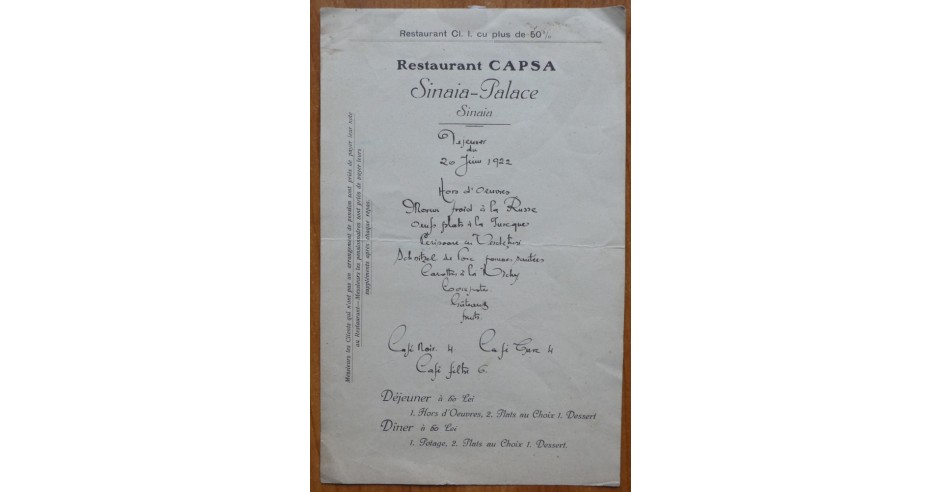 Restaurant Cl. I. cu plus de 50%
Restaurant CAPSA
Sinaia-Palace
Sinaia
Dejeuner
du
20 Juin 1922
Hors d'Oeuvres
froid à la Russe
Oeufs plats à la Turcque
Schnitzel de Porc pommes sautées
Carotte à la Vichy
Compote
Gateaux
fruits
Café Noir. 4. Café Turc 4
Café filtre 6.
Déjeuner à 60 Lei
1. Hors d'Oeuvres, 2. Plats au Choix 1. Dessert
Dîner à 60 Lei
1. Potage, 2. Plats au Choix 1. Dessert.
Messieurs les Clients qui n'ont pas un arrangement de pension sont priés de payer leur note
au Restaurant—Messieurs les pensionnaires sont priés de payer leurs
suppléments après chaque repas.